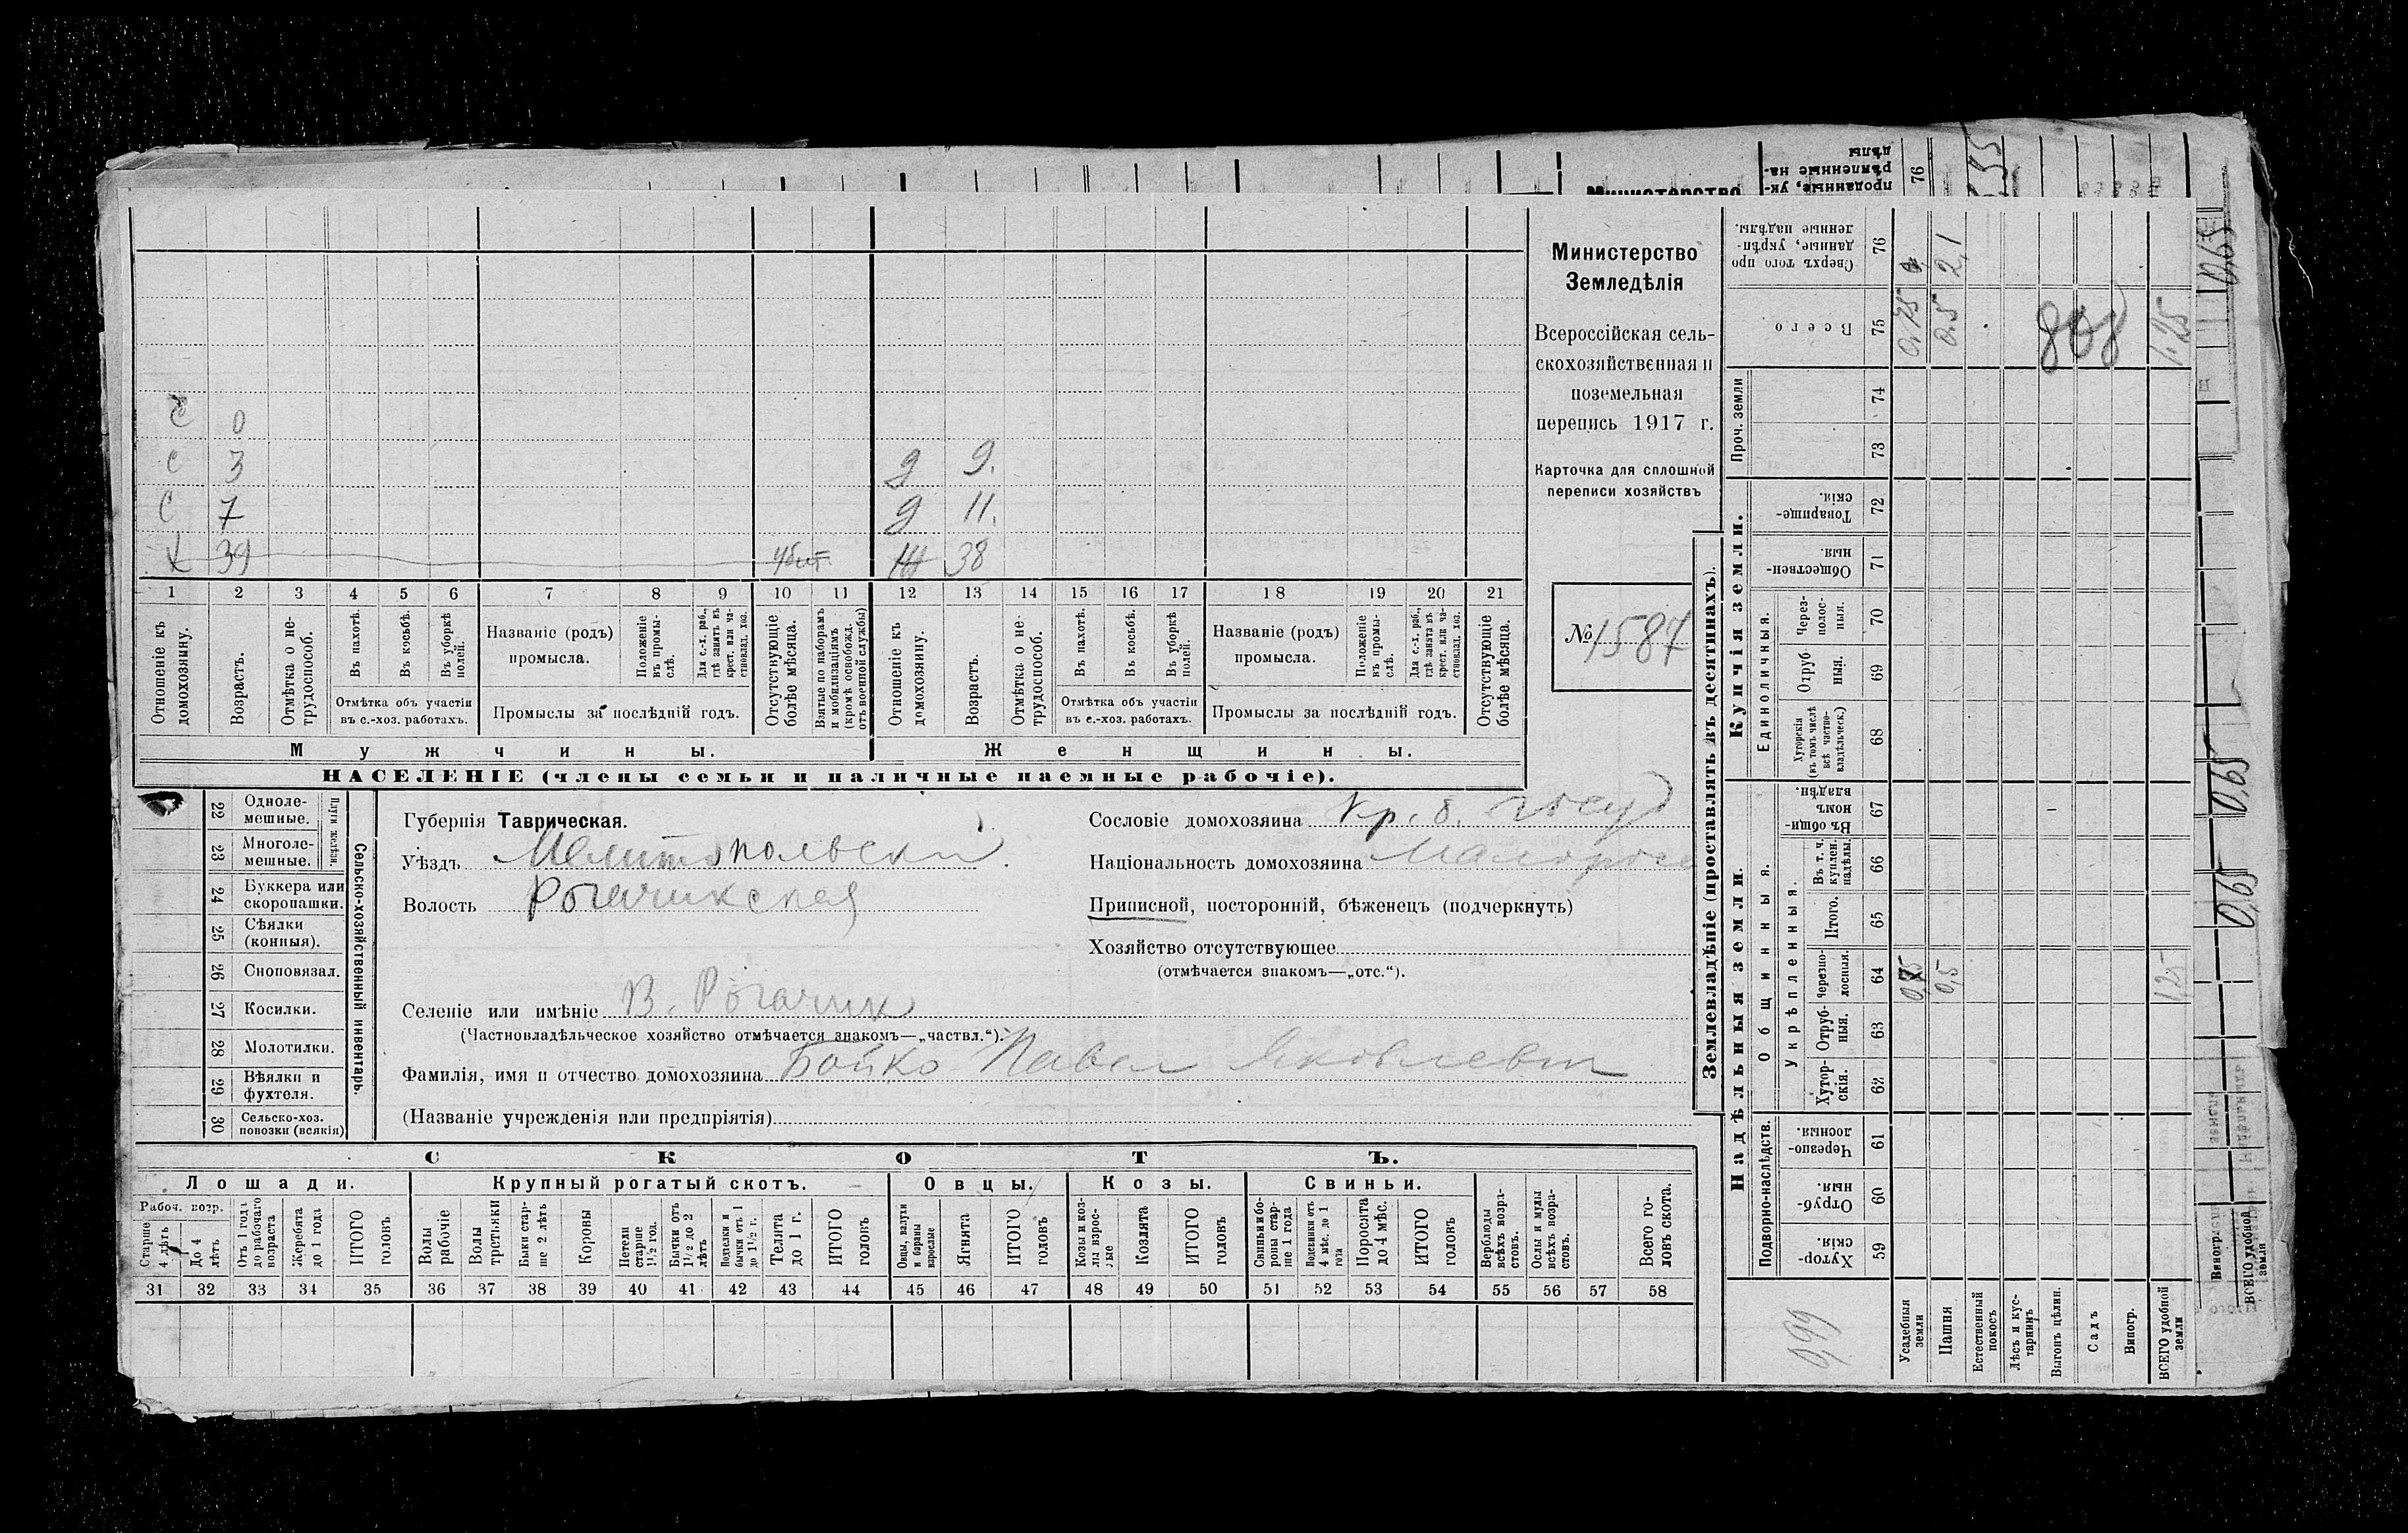 проданные, ук-
рѣпленные на-
дѣлы
76
Министерство
0,65
С 0
С 3 д 9.
С 7 д 11.
Х 39 убит Ж 38
1 2 3 4 5 6 7 8 9 10 11 12 13 14 15 16 17 18 19 20 21
Отношеніе къ домохозяину.
Возрастъ.
Отмѣтка о не-трудоспособ.
Въ пахотѣ.
Въ косьбѣ.
Въ уборкѣ полей.
Отмѣтка объ участіи въ с.-хоз. работахъ.
Названіе (родъ) промысла.
Положеніе въ промы-слѣ.
Для с.-х. раб., гдѣ занятъ въ крест. или ча-стновлад. хоз.
Промыслы за послѣдній годъ.
Отсутствующіе болѣе мѣсяца.
Взятые по наборамъ и мобилизаціямъ (кромѣ освобожд. отъ военной службы)
Отношеніе къ домохозяину.
Возрастъ.
Отмѣтка о не-трудоспособ.
Въ пахотѣ.
Въ косьбѣ.
Въ уборкѣ полей.
Отмѣтка объ участіи въ с.-хоз. работахъ.
Названіе (родъ) промысла.
Положеніе въ промы-слѣ.
Для с.-х. раб., гдѣ занята въ крест. или ча-стновлад. хоз.
Промыслы за послѣдній годъ.
Отсутствующіе болѣе мѣсяца.
Мужчины.
Женщины.
НАСЕЛЕНІЕ (члены семьи и наличные наемные рабочіе).
Министерство
Земледѣлія
Всероссійская сель-
скохозяйственная и
поземельная
перепись 1917 г.
Карточка для сплошной
переписи хозяйствъ
№ 1587
22 Одноле-мешные.
23 Многоле-мешные.
Плуги желѣзн.
24 Буккера или скоропашки.
25 Сѣялки (конныя).
26 Сноповязал.
27 Косилки.
28 Молотилки.
29 Вѣялки и фухтеля.
30 Сельско-хоз. повозки (всякія)
Сельско-хозяйственный инвентарь.
Губернія Таврическая.
Уѣздъ Мелитопольски
Волость Рогачикская
Селеніе или имѣніе В. Рогачик
(Частновладѣльческое хозяйство отмѣчается знакомъ—„частвл.“).
Фамилія, имя и отчество домохозяина Бойко Павел Яковлевич
(Названіе учрежденія или предпріятія)
Сословіе домохозяина кр. б. госуд
Національность домохозяина Малоросс
Приписной, посторонній, бѣженецъ (подчеркнуть)
Хозяйство отсутствующее
(отмѣчается знакомъ—„отс.“).
СКОТЪ.
Лошади. Крупный рогатый скотъ. Овцы. Козы. Свиньи.
Рабоч. возр.
Старше 4 лѣтъ
До 4 лѣтъ
Отъ 1 года до рабочаго возраста
Жеребята до 1 года
ИТОГО головъ
Волы рабочіе
Волы третьяки
Быки стар-ше 2 лѣтъ
Коровы
Нетели старше 1½ год.
Бычки отъ 1½ до 2 лѣтъ
Подтелки и бычки отъ 1 до 1½ г.
Телята до 1 г.
ИТОГО головъ
Овцы, валухи и бараны взрослые
Ягнята
ИТОГО головъ
Козы и коз-лы взрос-лые
Козлята
ИТОГО головъ
Свиньи и бо-ровы стар-ше 1 года
Подсвинки отъ 4 мѣс. до 1 года
Поросята до 4 мѣс.
ИТОГО головъ
Верблюды всѣхъ возра-стовъ.
Ослы и мулы всѣхъ возра-стовъ.
Всего го-ловъ скота.
31 32 33 34 35 36 37 38 39 40 41 42 43 44 45 46 47 48 49 50 51 52 53 54 55 56 57 58
Землевладѣніе (проставлять въ десятинахъ).
Надѣльныя земли.
Купчія земли.
Проч. земли
Подворно-наслѣдств.
Общинныя.
Укрѣпленныя.
Единоличныя.
Хутор-скія. 59
Отруб-ныя 60
Черезпо-лосныя. 61
Хутор-скія. 62
Отруб-ныя. 63
Черезпо-лосныя. 64 0,75 0,5 1,25
Итого. 65
Въ т. ч. куплен. надѣлы. 66
Въ общи-номъ владѣн. 67
Хуторскія (въ томъ числѣ всѣ частно-владѣльческ.) 68
Отруб ныя. 69
Через-полос-ныя. 70
Обществен-ныя. 71
Товарище-скія. 72
73
74
Всего 75 0,75 0.5 808 1.25
Сверхъ того про данные, укрѣп-ленные надѣлы. 76 2,1
0,99
Усадебныя земли
Пашня
Естественный покосъ
Лѣсъ и кус-тарникъ
Выгонъ цѣлин.
Садъ
Виногр.
ВСЕГО удобной земли
0,65
0,65
Виногр.
ВСЕГО удобной земли